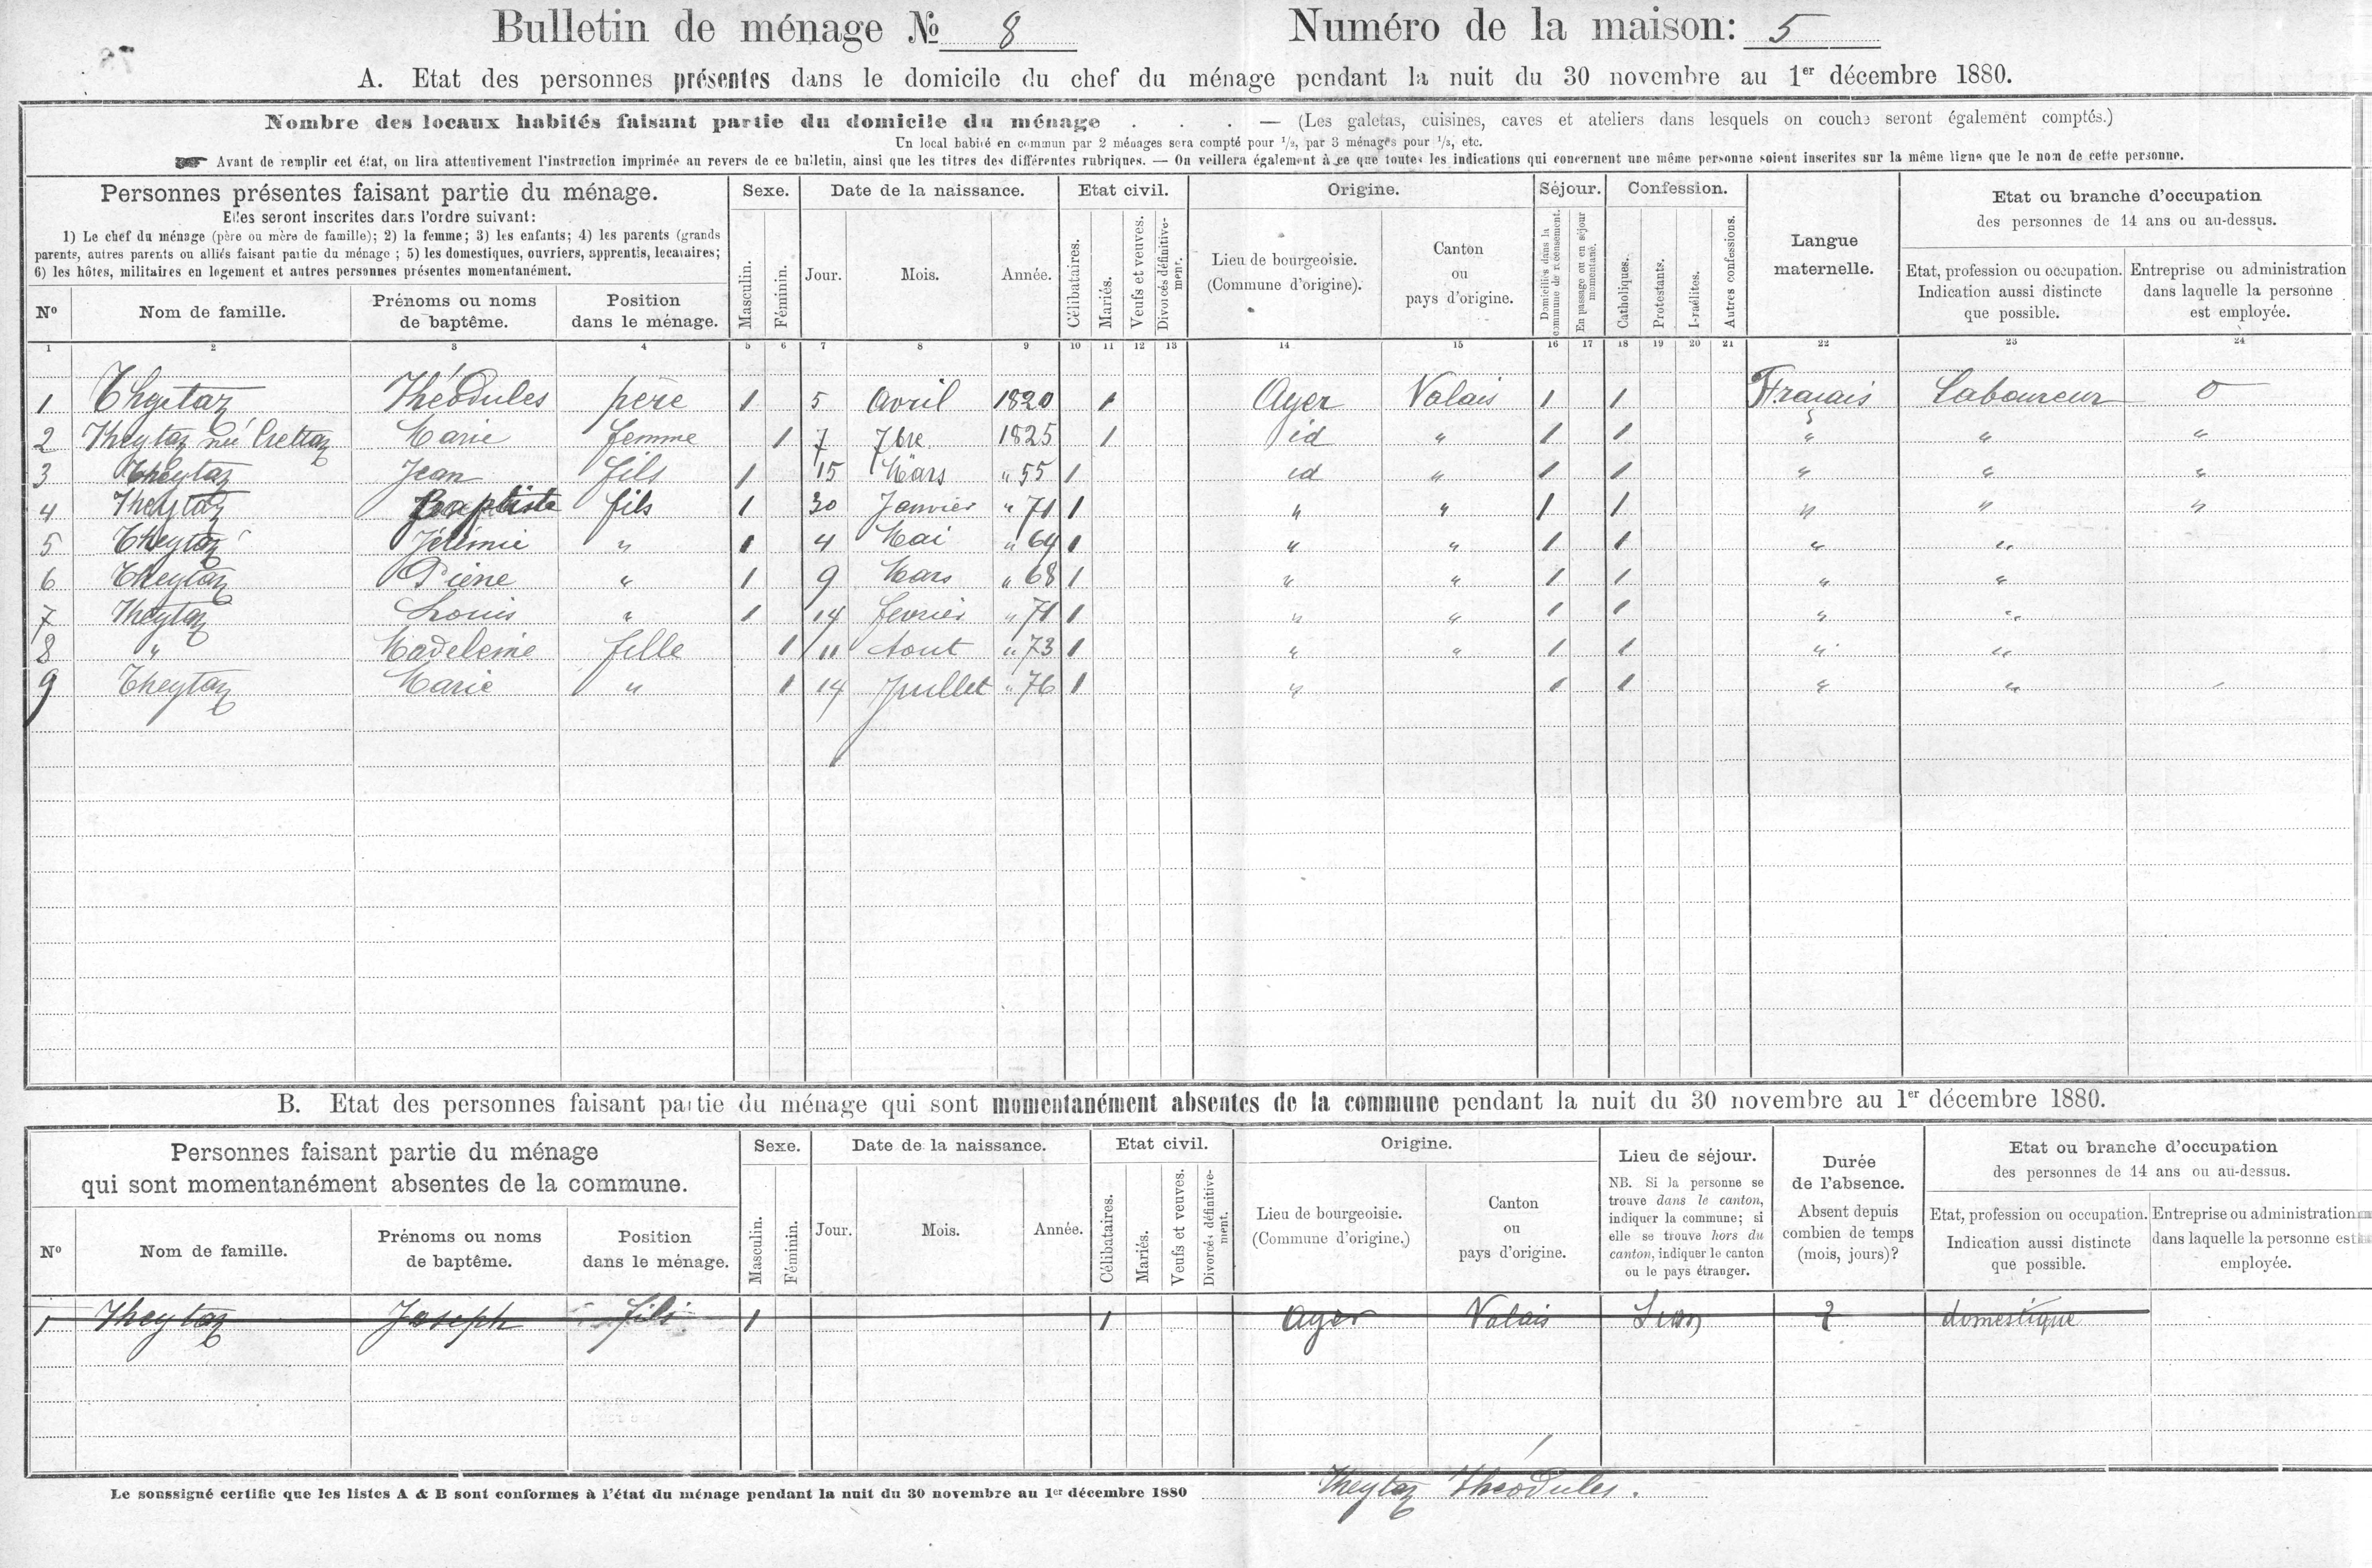 Bulletin de ménage № 8 Numéro de la maison: 5
A. Etat des personnes présentes dans le domicile du chef du ménage pendant la nuit du 30 novembre au 1er décembre 1880.
Nombre des locaux habités faisant partie du domicile du ménage . . . — (Les galetas, cuisines, caves et ateliers dans lesquels on couche seront également comptés.)
Un local habité en commun par 2 ménages sera compté pour 1/2, par 3 ménages pour 1/3, etc.
☛ Avant de remplir cet état, on lira attentivement l'instruction imprimée au revers de ce bulletin, ainsi que les titres des différentes rubriques. — On veillera également à ce que toutes les indications qui concernent une même personne soient inscrites sur la même ligne que le nom de cette personne.
Personnes présentes faisant partie du ménage. Sexe. Date de la naissance. Etat civil. Origine. Séjour. Confession. Langue maternelle. Etat ou branche d'occupation
des personnes de 14 ans ou au-dessus.
Elles seront inscrites dans l'ordre suivant:
1) Le chef du ménage (père ou mère de famille); 2) la femme; 3) les enfants; 4) les parents (grands
parents, autres parents ou alliés faisant partie du ménage ; 5) les domestiques, ouvriers, apprentis, locataires;
6) les hôtes, militaires en logement et autres personnes présentes momentanément.
No Nom de famille. Prénoms ou noms de baptême. Position dans le ménage. Masculin. Féminin. Jour. Mois. Année. Célibataires. Mariés. Veufs et veuves. Divorcés définitivement. Lieu de bourgeoisie. (Commune d'origine). Canton ou pays d'origine. Domiciliés dans la commune de recensement. En passage ou en séjour momentané. Catholiques. Protestants. Israélites. Autres confessions. Etat, profession ou occupation. Indication aussi distincte que possible. Entreprise ou administration dans laquelle la personne est employée.
1 2 3 4 5 6 7 8 9 10 11 12 13 14 15 16 17 18 19 20 21 22 23 24
1 Theytaz Théodules père 1 5 Avril 1820 1 Ayer Valais 1 1 Français Laboureur 0
2 Theytaz née Crettaz Marie femme 1 7 7bre 1825 1 id " 1 1 " " "
3 Theytaz Jean fils 1 15 Mars " 55 1 id " 1 1 " " "
4 Theytaz Baptiste fils 1 30 Janvier " 71 1 " " 1 1 " " "
5 Theytaz Jérémie " 1 4 Mai " 64 1 " " 1 1 " "
6 Theytaz Pierre " 1 9 Mars " 68 1 " " 1 1 " "
7 Theytaz Louis " 1 14 fevrier " 71 1 " " 1 1 " "
8 " Madeleine fille 1 11 Aout " 73 1 " " 1 1 " "
9 Theytaz Marie " 1 14 Juillet " 76 1 " 1 1 " "
B. Etat des personnes faisant partie du ménage qui sont momentanément absentes de la commune pendant la nuit du 30 novembre au 1er décembre 1880.
Personnes faisant partie du ménage
qui sont momentanément absentes de la commune. Sexe. Date de la naissance. Etat civil. Origine. Lieu de séjour. Durée de l'absence. Etat ou branche d'occupation
des personnes de 14 ans ou au-dessus.
NB. Si la personne se trouve dans le canton, indiquer la commune; si elle se trouve hors du canton, indiquer le canton ou le pays étranger.
Absent depuis combien de temps (mois, jours)?
No Nom de famille. Prénoms ou noms de baptême. Position dans le ménage. Masculin. Féminin. Jour. Mois. Année. Célibataires. Mariés. Veufs et veuves. Divorcés définitivement. Lieu de bourgeoisie. (Commune d'origine.) Canton ou pays d'origine. Etat, profession ou occupation. Indication aussi distincte que possible. Entreprise ou administration dans laquelle la personne est employée.
1 Theytaz Joseph fils 1 1 Ayer Valais Sion ? domestique
Le soussigné certifie que les listes A & B sont conformes à l'état du ménage pendant la nuit du 30 novembre au 1er décembre 1880 Theytaz Théodules.